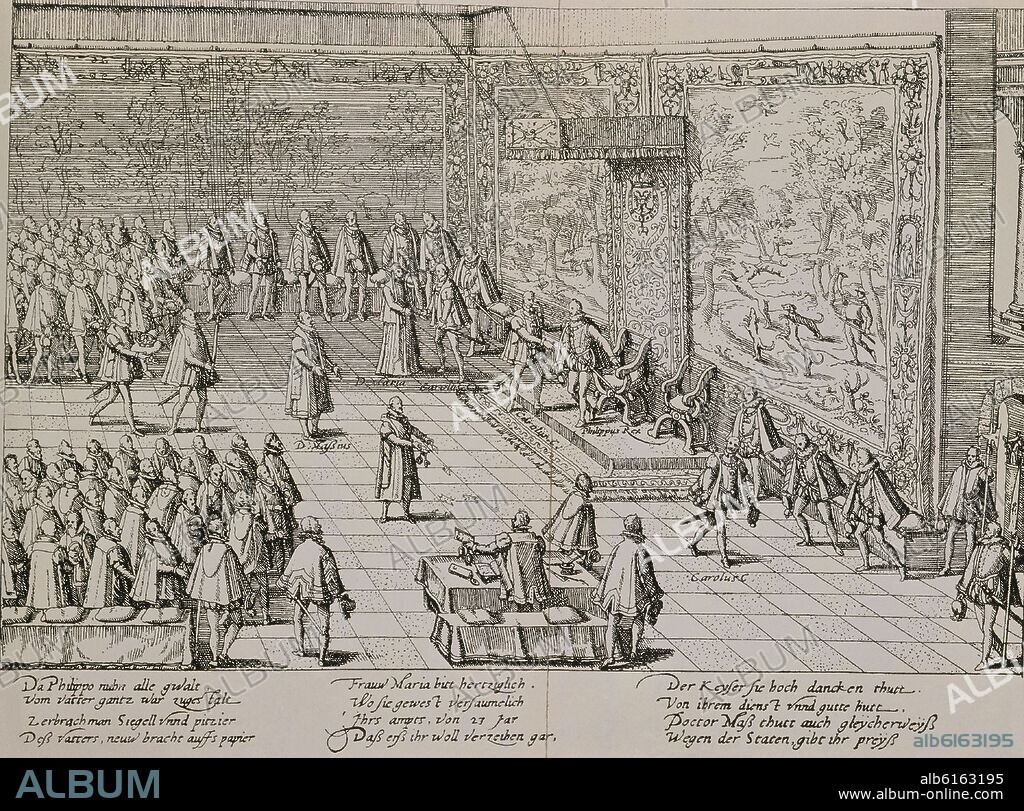 D. Maria
Carolus
Philippus R.
Carolus C
Da Philippo nuhn alle gwalt
Vom vatter gantz war zugestalt
Zerbrach man Siegell vnnd pitzier
Deß vatters, neuw bracht auffs papier
Frauw Maria bitt hertziglich.
Wo sie gewest versaumelich
Ihrs ampts, von 23 Jar
Daß erß ihr woll verzeihen gar,
Der Keyser sie hoch dancken thutt
Von ihrem dienst vnnd gutte hutt.
Doctor Maß thutt auch gleycherweyß
Wegen der Staten, gibt ihr preyß
alb6163195
ALBUM
alb6163195
www.album-online.com